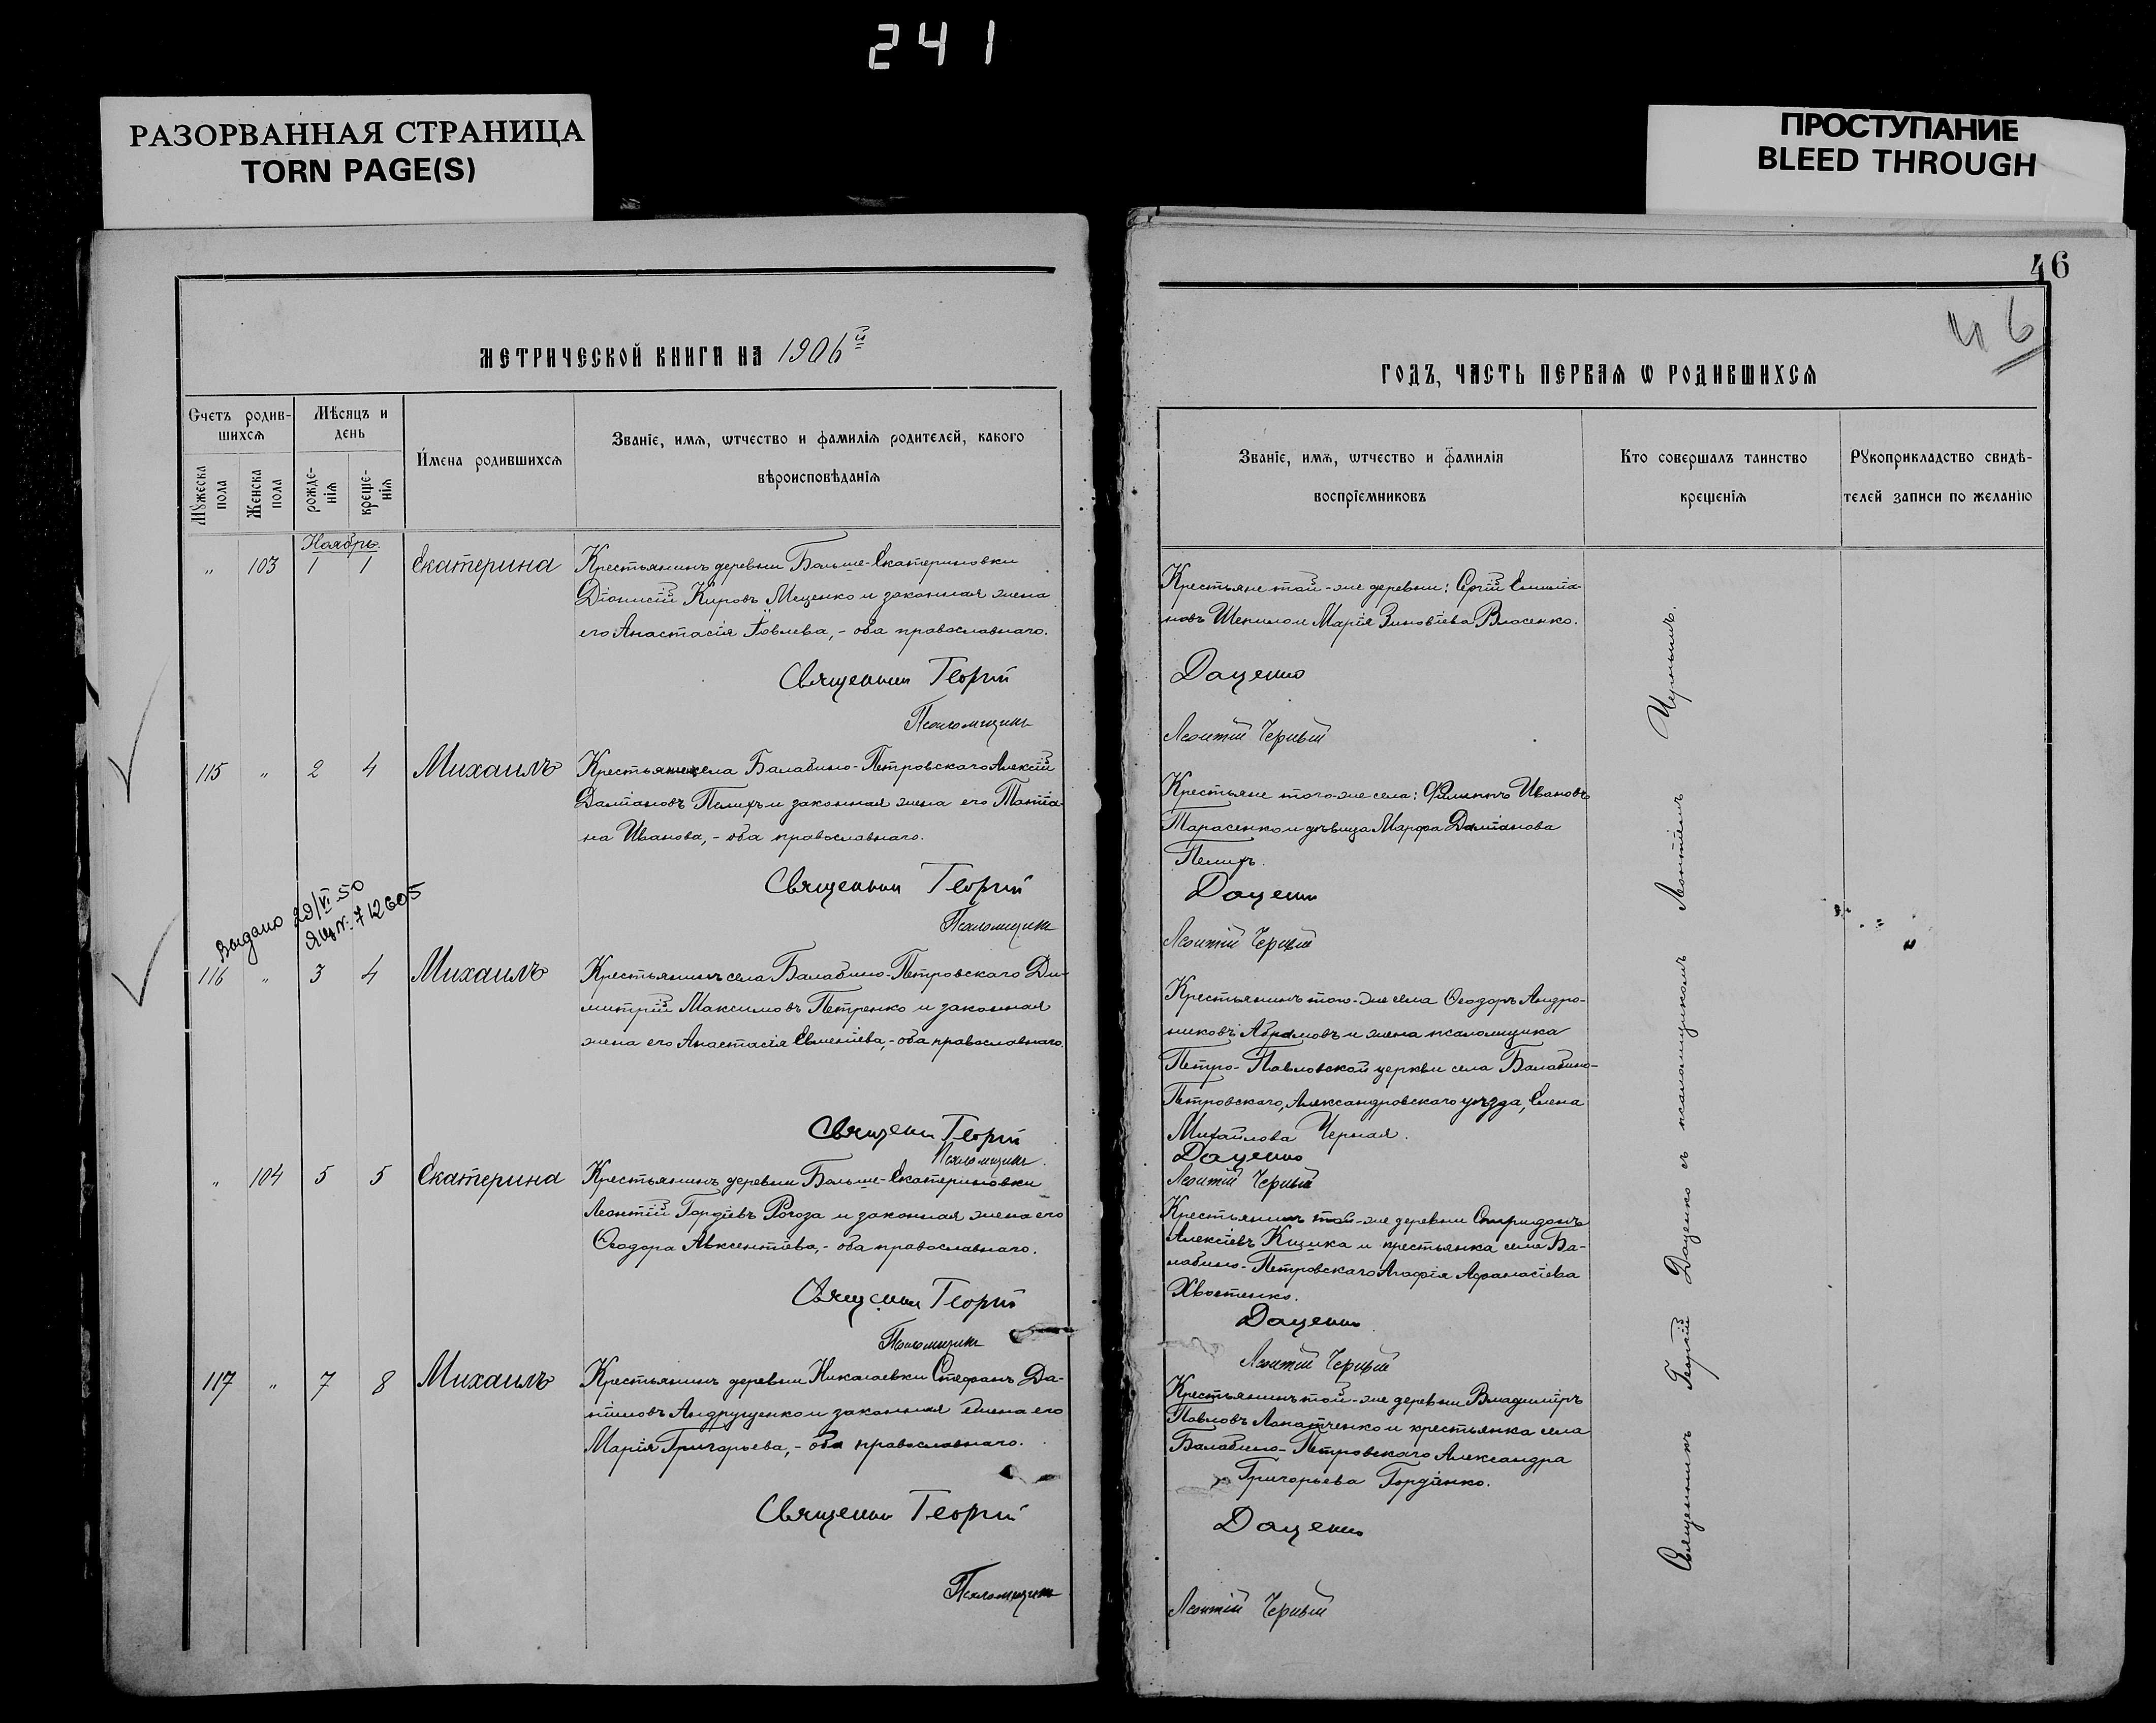 241
РАЗОРВАННАЯ СТРАНИЦА
TORN PAGE(S)
ПРОСТУПАНИЕ
BLEED THROUGH
МЕТРИЧЕСКОЙ КНИГИ НА 1906й
Счетъ родив-
шихсѧ
Мѣсяцъ и
день
Мꙋжеска
пола
Женска
пола
рожде-
нїѧ
креще-
нїѧ
И́мена родившихсѧ
Званїе, имѧ, ѡтчество и фамилїѧ родителей, какого
вѣроисповѣданїѧ
Ноябрь.
„ 103 1 1 Екатерина
Крестьянинъ деревни Больше-Екатериновки
Діонисій Кировъ Мещенко и законная жена
его Анастасія Іовлева, - оба православнаго.
Священник Георгій
Псаломщикъ
115 „ 2 4 Михаилъ
села Балабино-Петровскаго Алексій
Даміановъ Пелихъ и законная жена его Татіа-
на Иванова, - оба православнаго.
Священник Георгій
Псаломщикъ
Выдано 29/VI 50
ЯЦ N: 712605
116 „ 3 4 Михаилъ
Крестьянинъ села Балабино-Петровскаго Ди-
митрій Максимовъ Петренко и законная
жена его Анастасія Евменіева, - оба православнаго.
Священник Георгій
Псаломщикъ
„ 104 5 5 Екатерина
Крестьянинъ деревни Больше-Екатериновки
Леонтій Гордіевъ Рогоза и законная жена его
Ѳеодора Авксентіева, - оба православнаго.
Священник Георгій
Псаломщикъ
117 „ 7 8 Михаилъ
Крестьянинъ деревни Николаевки Стефанъ Да-
ніиловъ Андрущенко и законная жена его
Марія Григорьева, - оба православнаго.
Священник Георгій
Псаломщикъ
46
46
ГОДЪ, ЧАСТЬ ПЕРВАѦ Ѡ РОДИВШИХСѦ
Званїе, имѧ, ѡтчество и фамилїѧ
воспрїемниковъ
Кто совершалъ таинство
крещенїѧ
Рꙋкоприкладство свидѣ-
телей записи по желанїю
Крестьяне той-же деревни: Сергій
Марія Зиновіева Власенко.
Даценко
Леонтій Черный
Крестьяне того-же села: Филиппъ Ивановъ
Тарасенко и дѣвица Марѳа Даміанова
Пелихъ.
Даценко
Леонтій Черный
Крестьянинъ того-же села Ѳеодоръ Андро-
никовъ Абрамовъ и жена псаломщика
Петро-Павловской церкви села Балабино-
Петровскаго, Александровскаго уѣзда, Елена
Михайлова Черная.
Даценко
Леонтій Черный
Крестьянинъ той-же деревни Спиридонъ
Алексіевъ Кишка и крестьянка села Ба-
лабино-Петровскаго Агафія Афанасіева
Хвостенко.
Даценко
Леонтій Черный
Крестьянинъ той-же деревни Владиміръ
Павловъ Лопатченко и крестьянка села
Балабино-Петровскаго Александра
Григорьева Гордіенко.
Даценко
Леонтій Черный
Священникъ Георгій Даценко съ псаломщикомъ Леонтіемъ Чернымъ.